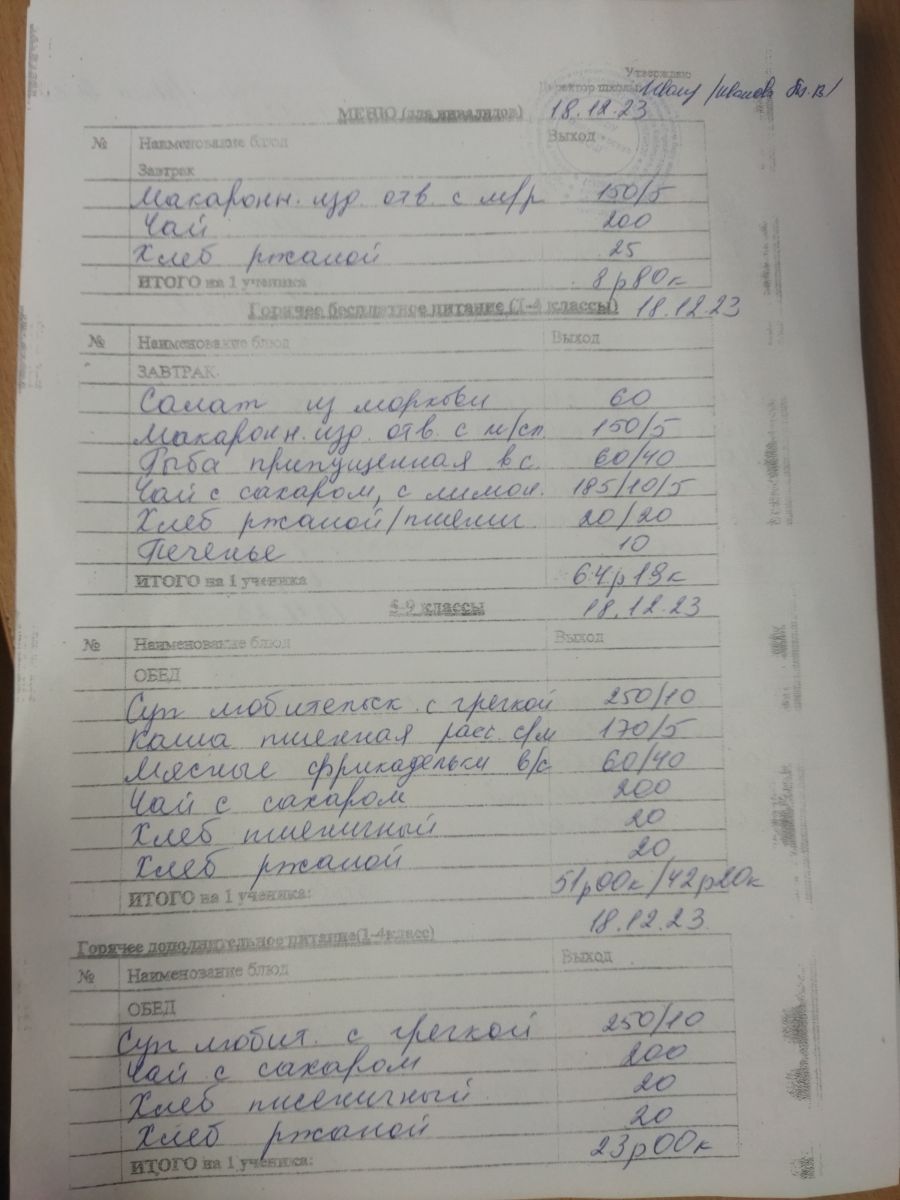 Утверждаю
Директор школы /Иванова
МЕНЮ (для инвалидов) 18.12.23
№ Наименование блюд Выход
Завтрак
Макаронн. изд. отв. с м/р 150/5
Чай 200
Хлеб ржаной 25
ИТОГО на 1 ученика 8р80к
Горячее бесплатное питание (1-4 классы) 18.12.23
№ Наименование блюд Выход
ЗАВТРАК
Салат из моркови 60
Макаронн. изд. отв. с м/сл. 150/5
Рыба припущенная в с. 60/40
Чай с сахаром, с лимон. 185/10/5
Хлеб ржаной/пшенич 20/20
Печенье 10
ИТОГО на 1 ученика 64р19к
5-9 классы 18.12.23
№ Наименование блюд Выход
ОБЕД
Суп любительск. с гренкой 250/10
Каша пшенная расс. с/м 170/5
Мясные фрикадельки в/с 60/40
Чай с сахаром 200
Хлеб пшеничный 20
Хлеб ржаной 20
ИТОГО на 1 ученика: 51р00к/42р20к
18.12.23
Горячее дополнительное питание(1-4класс)
№ Наименование блюд Выход
ОБЕД
Суп любит. с гренкой 250/10
Чай с сахаром 200
Хлеб пшеничный 20
Хлеб ржаной 20
ИТОГО на 1 ученика: 23р00к